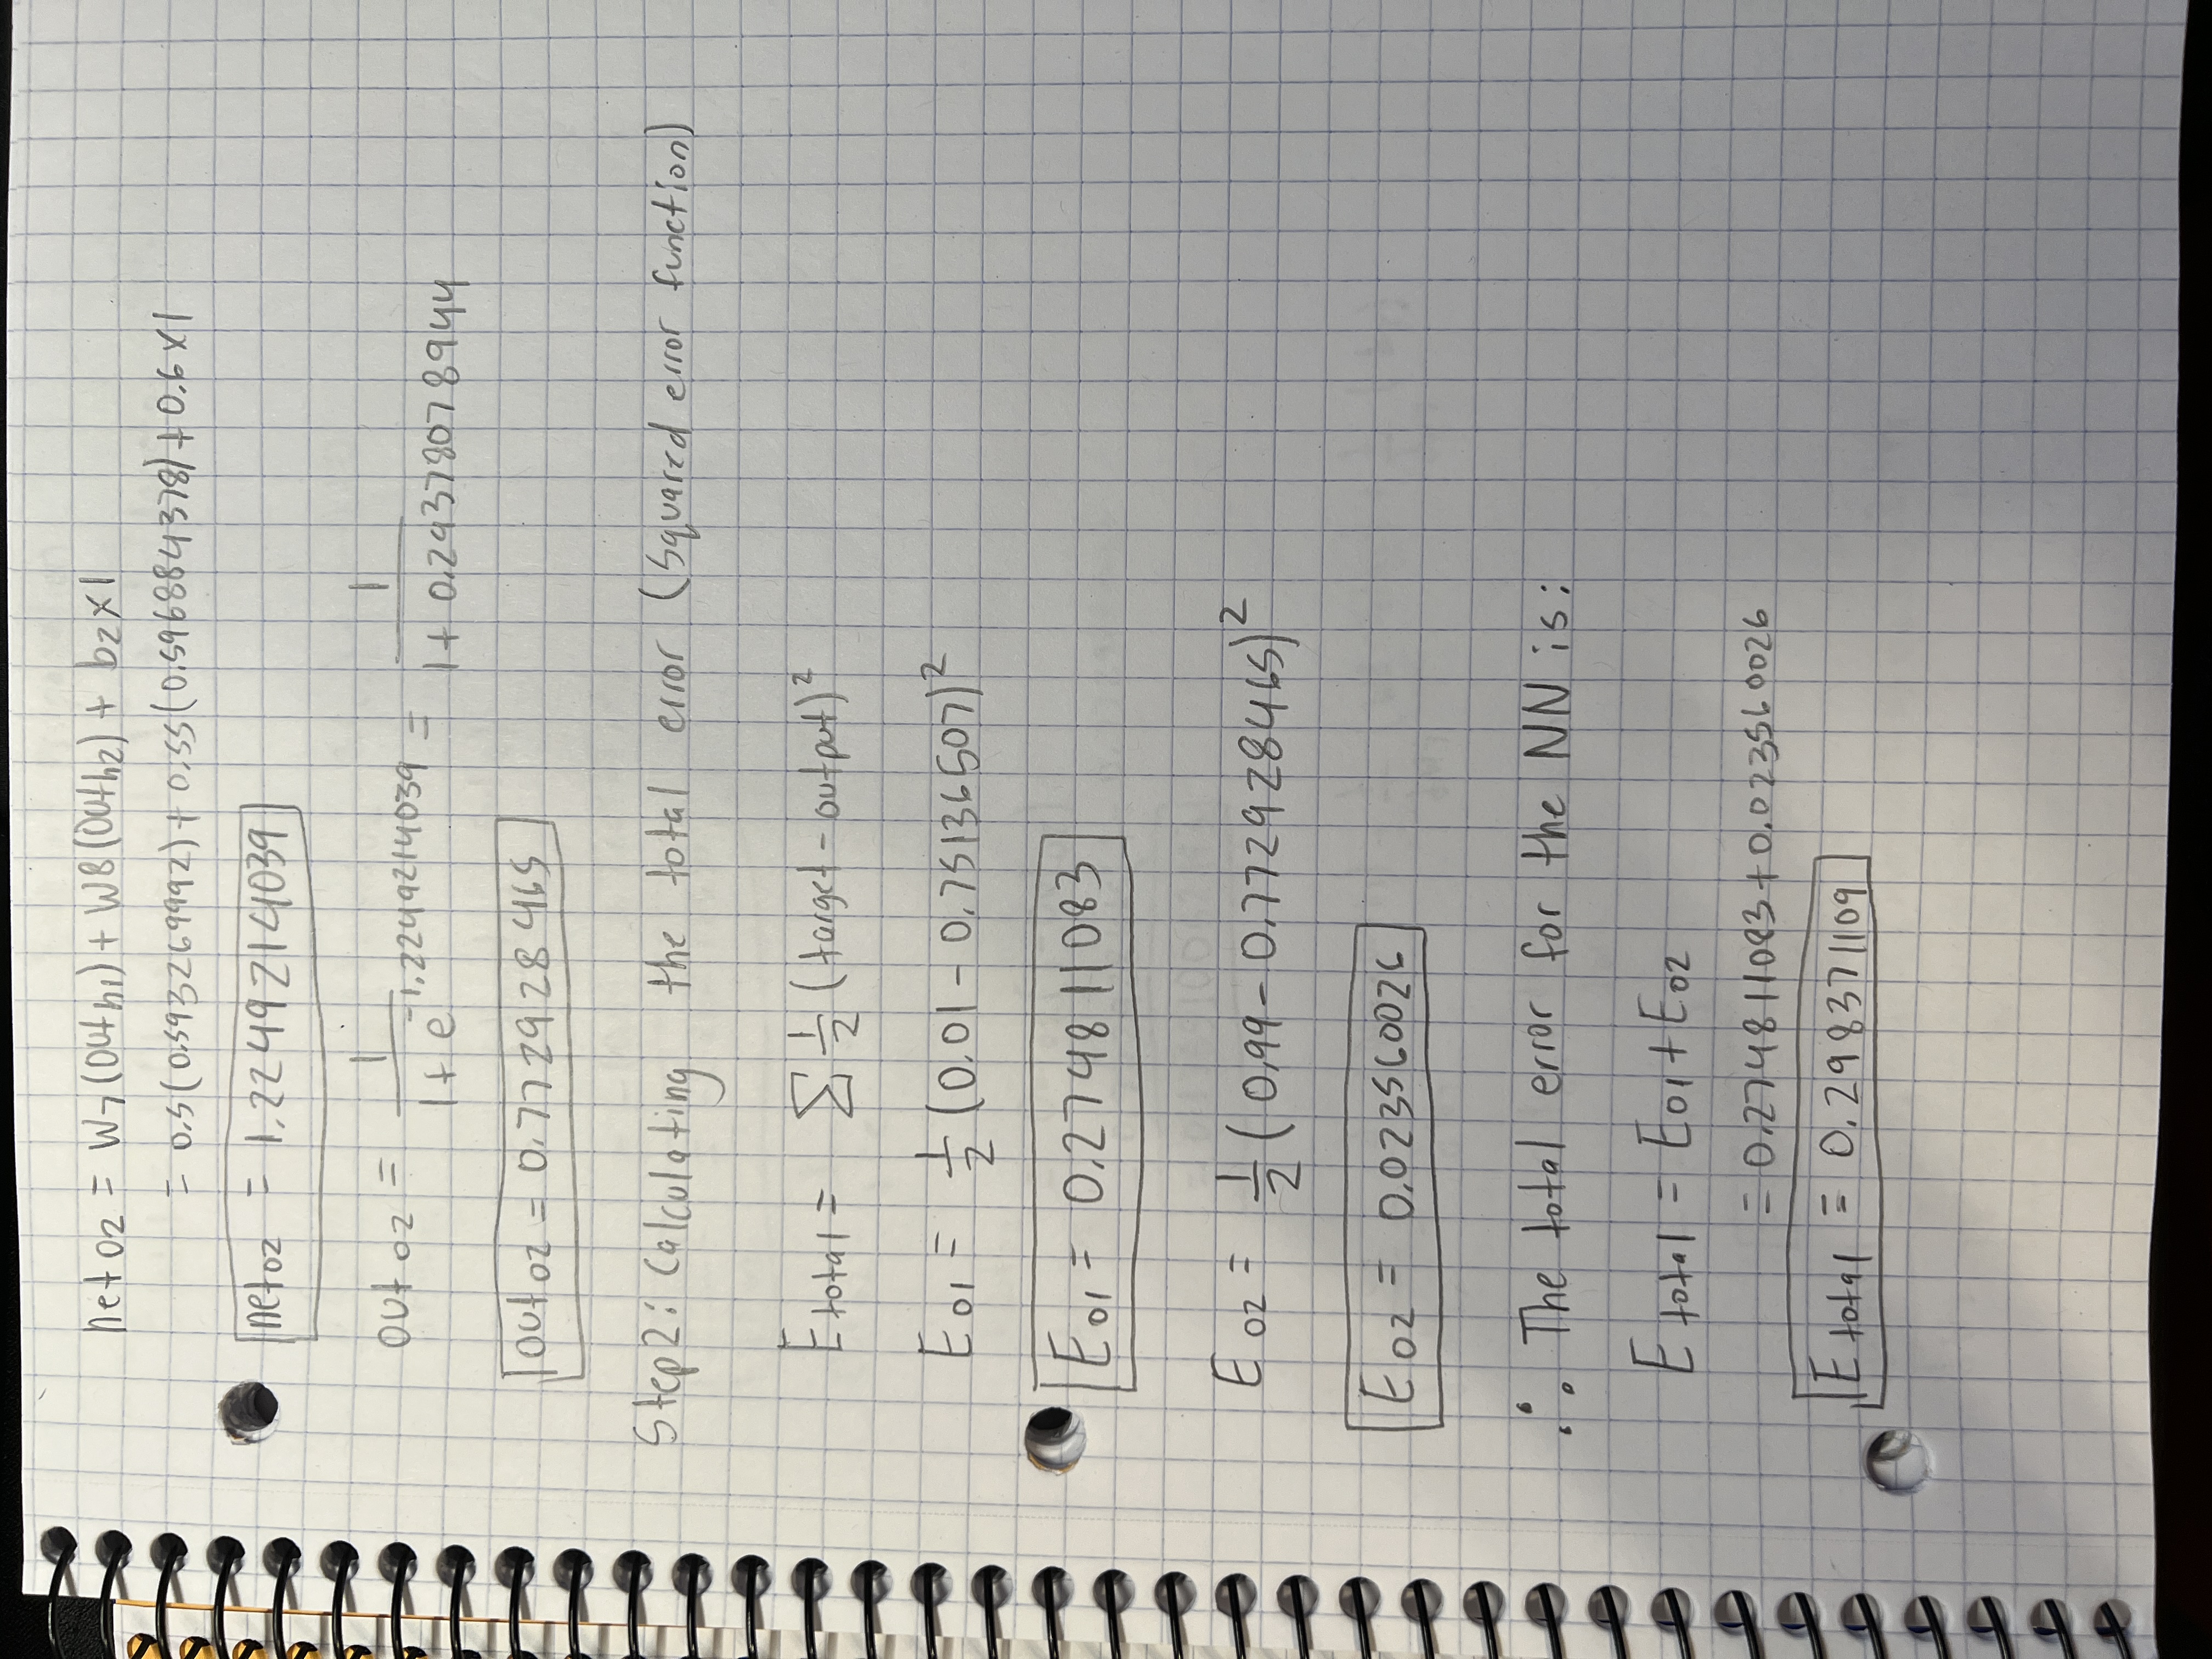 net o2 = W7(Outh1) + W8(Outh2) + b2×1
= 0.5(0.593269992) + 0.55(0.596884378) + 0.6×1
net o2 = 1.2249214039
out o2 = 1/(1+e^-1.2249214039) = 1/(1+0.29378078944)
out o2 = 0.772928465
Step2: Calculating the total error (Squared error function)
E total = Σ 1/2 (target - output)²
E o1 = 1/2 (0.01 - 0.75136507)²
E o1 = 0.274811083
E o2 = 1/2 (0.99 - 0.772928465)²
E o2 = 0.023560026
∴ The total error for the NN is:
E total = E o1 + E o2
= 0.274811083 + 0.023560026
E total = 0.298371109